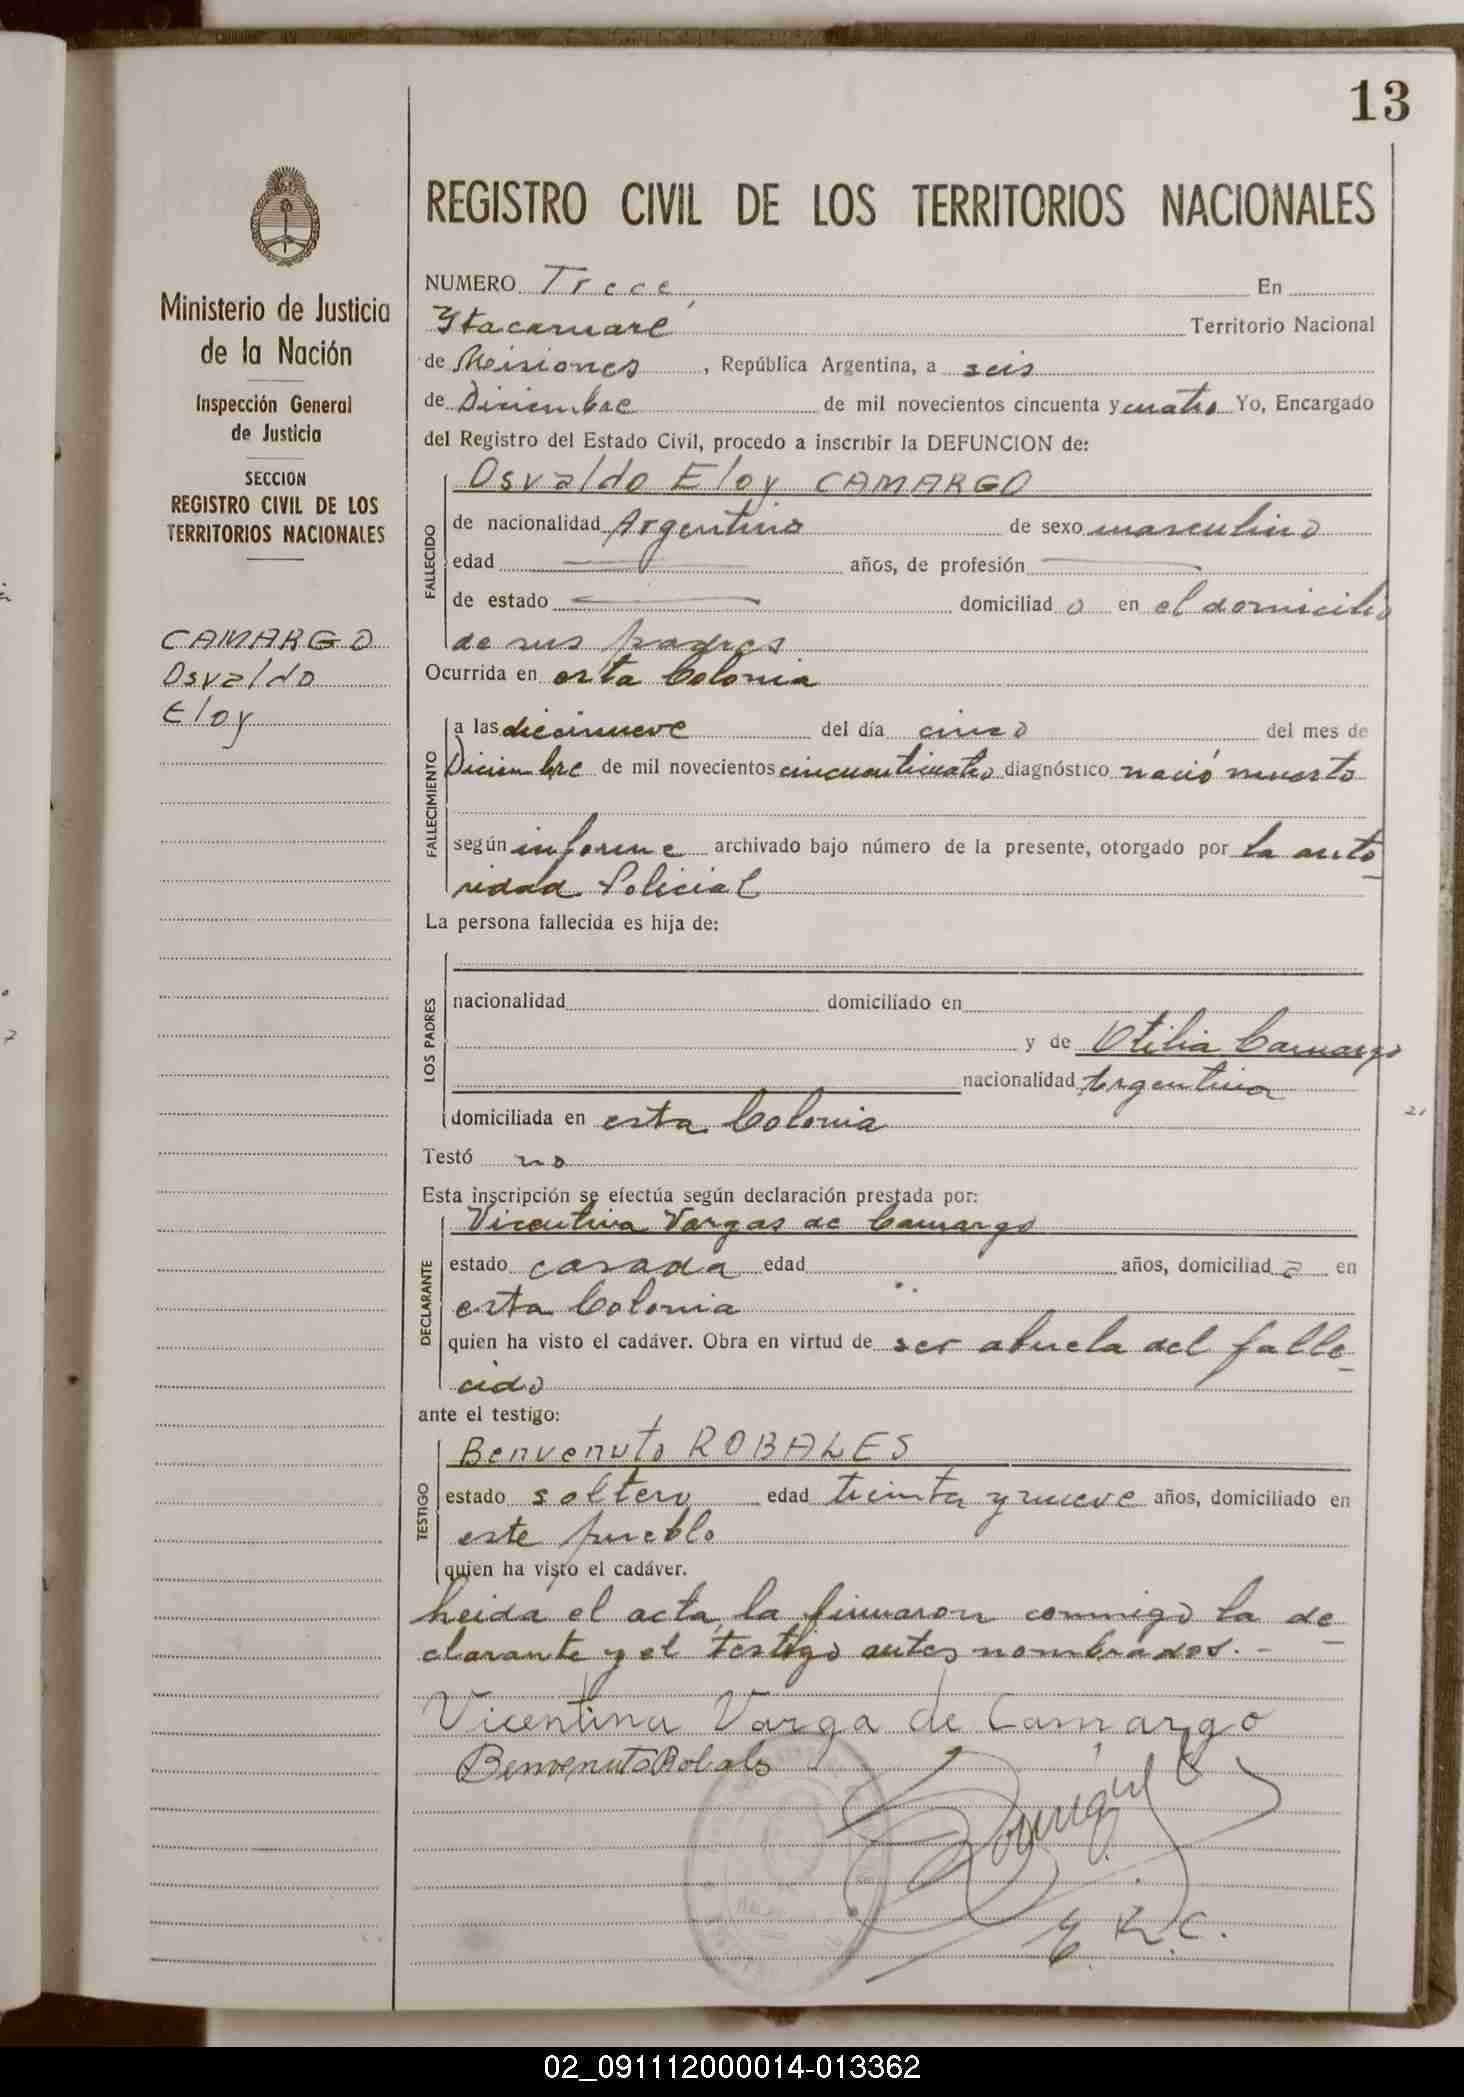 13
REGISTRO CIVIL DE LOS TERRITORIOS NACIONALES
Ministerio de Justicia
de la Nación
Inspección General
de Justicia
SECCION
REGISTRO CIVIL DE LOS
TERRITORIOS NACIONALES
CAMARGO
Osvaldo
Eloy
NUMERO Trece En
Ytacaruaré Territorio Nacional
de Misiones, República Argentina, a seis
de Diciembre de mil novecientos cincuenta y cuatro Yo, Encargado
del Registro del Estado Civil, procedo a inscribir la DEFUNCION de:
FALLECIDO
Osvaldo Eloy CAMARGO
de nacionalidad Argentino de sexo masculino
edad años, de profesión
de estado domiciliado en el domicilio
de sus padres
Ocurrida en esta Colonia
FALLECIMIENTO
a las diecinueve del día cinco del mes de
Diciembre de mil novecientos cincuenticuatro diagnóstico nació muerto
según informe archivado bajo número de la presente, otorgado por la auto-
ridad Policial
La persona fallecida es hija de:
LOS PADRES
nacionalidad domiciliado en
y de Otilia Camargo
nacionalidad Argentina
domiciliada en esta Colonia
Testó no
Esta inscripción se efectúa según declaración prestada por:
DECLARANTE
Vicentina Vargas de Camargo
estado casada edad años, domiciliada en
esta Colonia
quien ha visto el cadáver. Obra en virtud de ser abuela del falle-
cido
ante el testigo:
TESTIGO
Benvenuto ROBALES
estado soltero edad treinta y nueve años, domiciliado en
este pueblo
quien ha visto el cadáver.
Leida el acta, la firmaron conmigo la de-
clarante y el testigo antes nombrados.-
Vicentina Varga de Camargo
Benvenuto Robals
E. R. C.
02_091112000014-013362